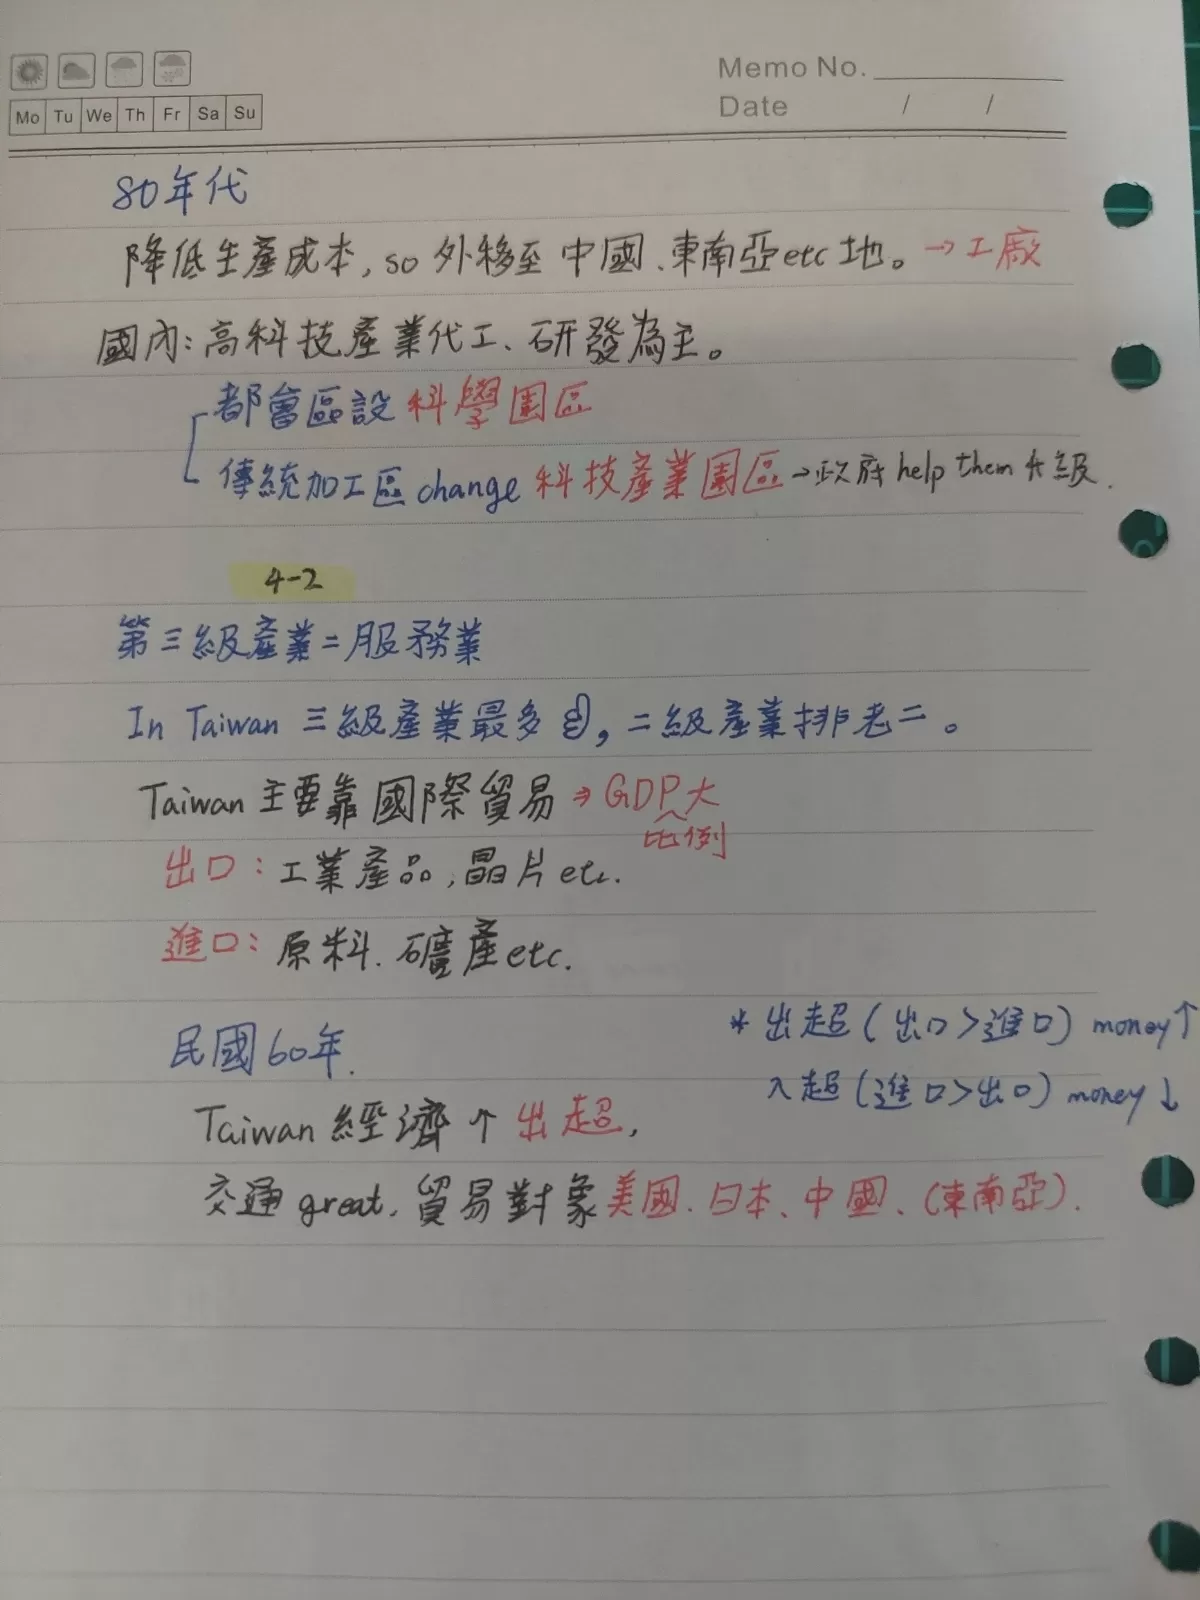 Memo No.
Mo Tu We Th Fr Sa Su
Date / /
80年代
降低生產成本, so 外移至 中國、東南亞etc地。→工廠
國內:高科技產業代工、研發為主。
都會區設科學園區
傳統加工區change科技產業園區→政府help them升級.
4-2
第三級產業=服務業
In Taiwan 三級產業最多, 二級產業排老二。
Taiwan 主要靠國際貿易⇒GDP大
比例
出口:工業產品,晶片etc.
進口:原料.礦產etc.
*出超(出口>進口) money↑
民國60年.
入超(進口>出口) money↓
Taiwan 經濟↑出超,
交通great, 貿易對象美國.日本、中國、(東南亞).